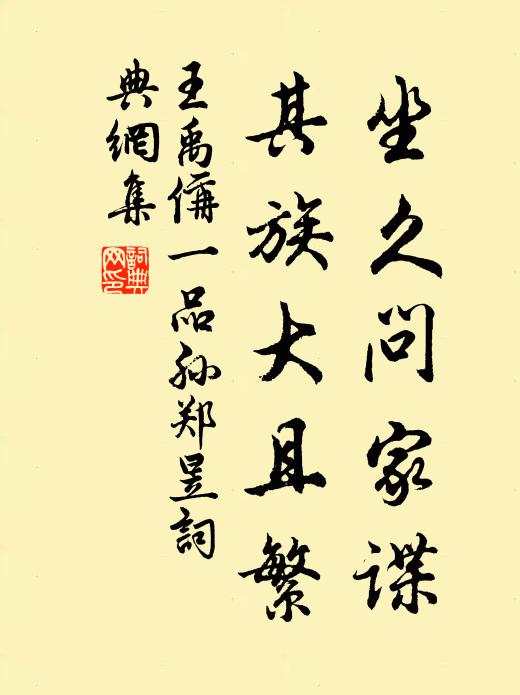 坐久问家谍
其族大且繁
王禹偁一品孙郑昱詞
典網集
詞典
网印